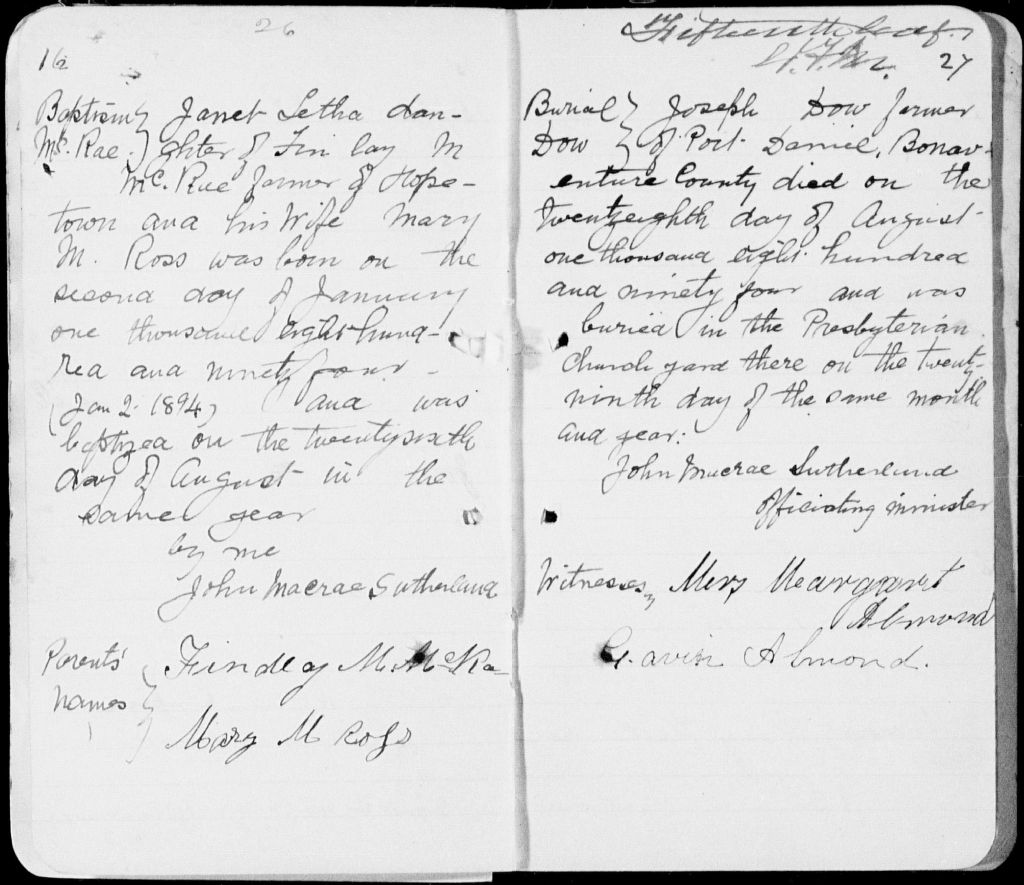 26
16
Baptism } Janet Letha dau-
Mc. Rae. } ghter of Finlay M
Mc. Rae farmer of Hope-
town and his Wife Mary
M. Ross was born on the
second day of January
one thousand eight hund-
red and ninety four -
(Jan 2. 1894) and was
baptized on the twenty sixth
day of August in the
same year
by me
John Macrae Sutherland
Parents' } Findlay M. McRa
names } Mary M Ross
Fifteenth leaf.
27
Burial } Joseph Dow farmer
Dow } of Port Daniel, Bonav-
enture County died on the
twenty eighth day of August
one thousand eight hundred
and ninety four and was
buried in the Presbyterian
Church yard there on the twenty-
ninth day of the same month
and year:
John Macrae Sutherland
Officiating minister
Witnesses, Mrs Meargaret
Almond
Gavin Almond.